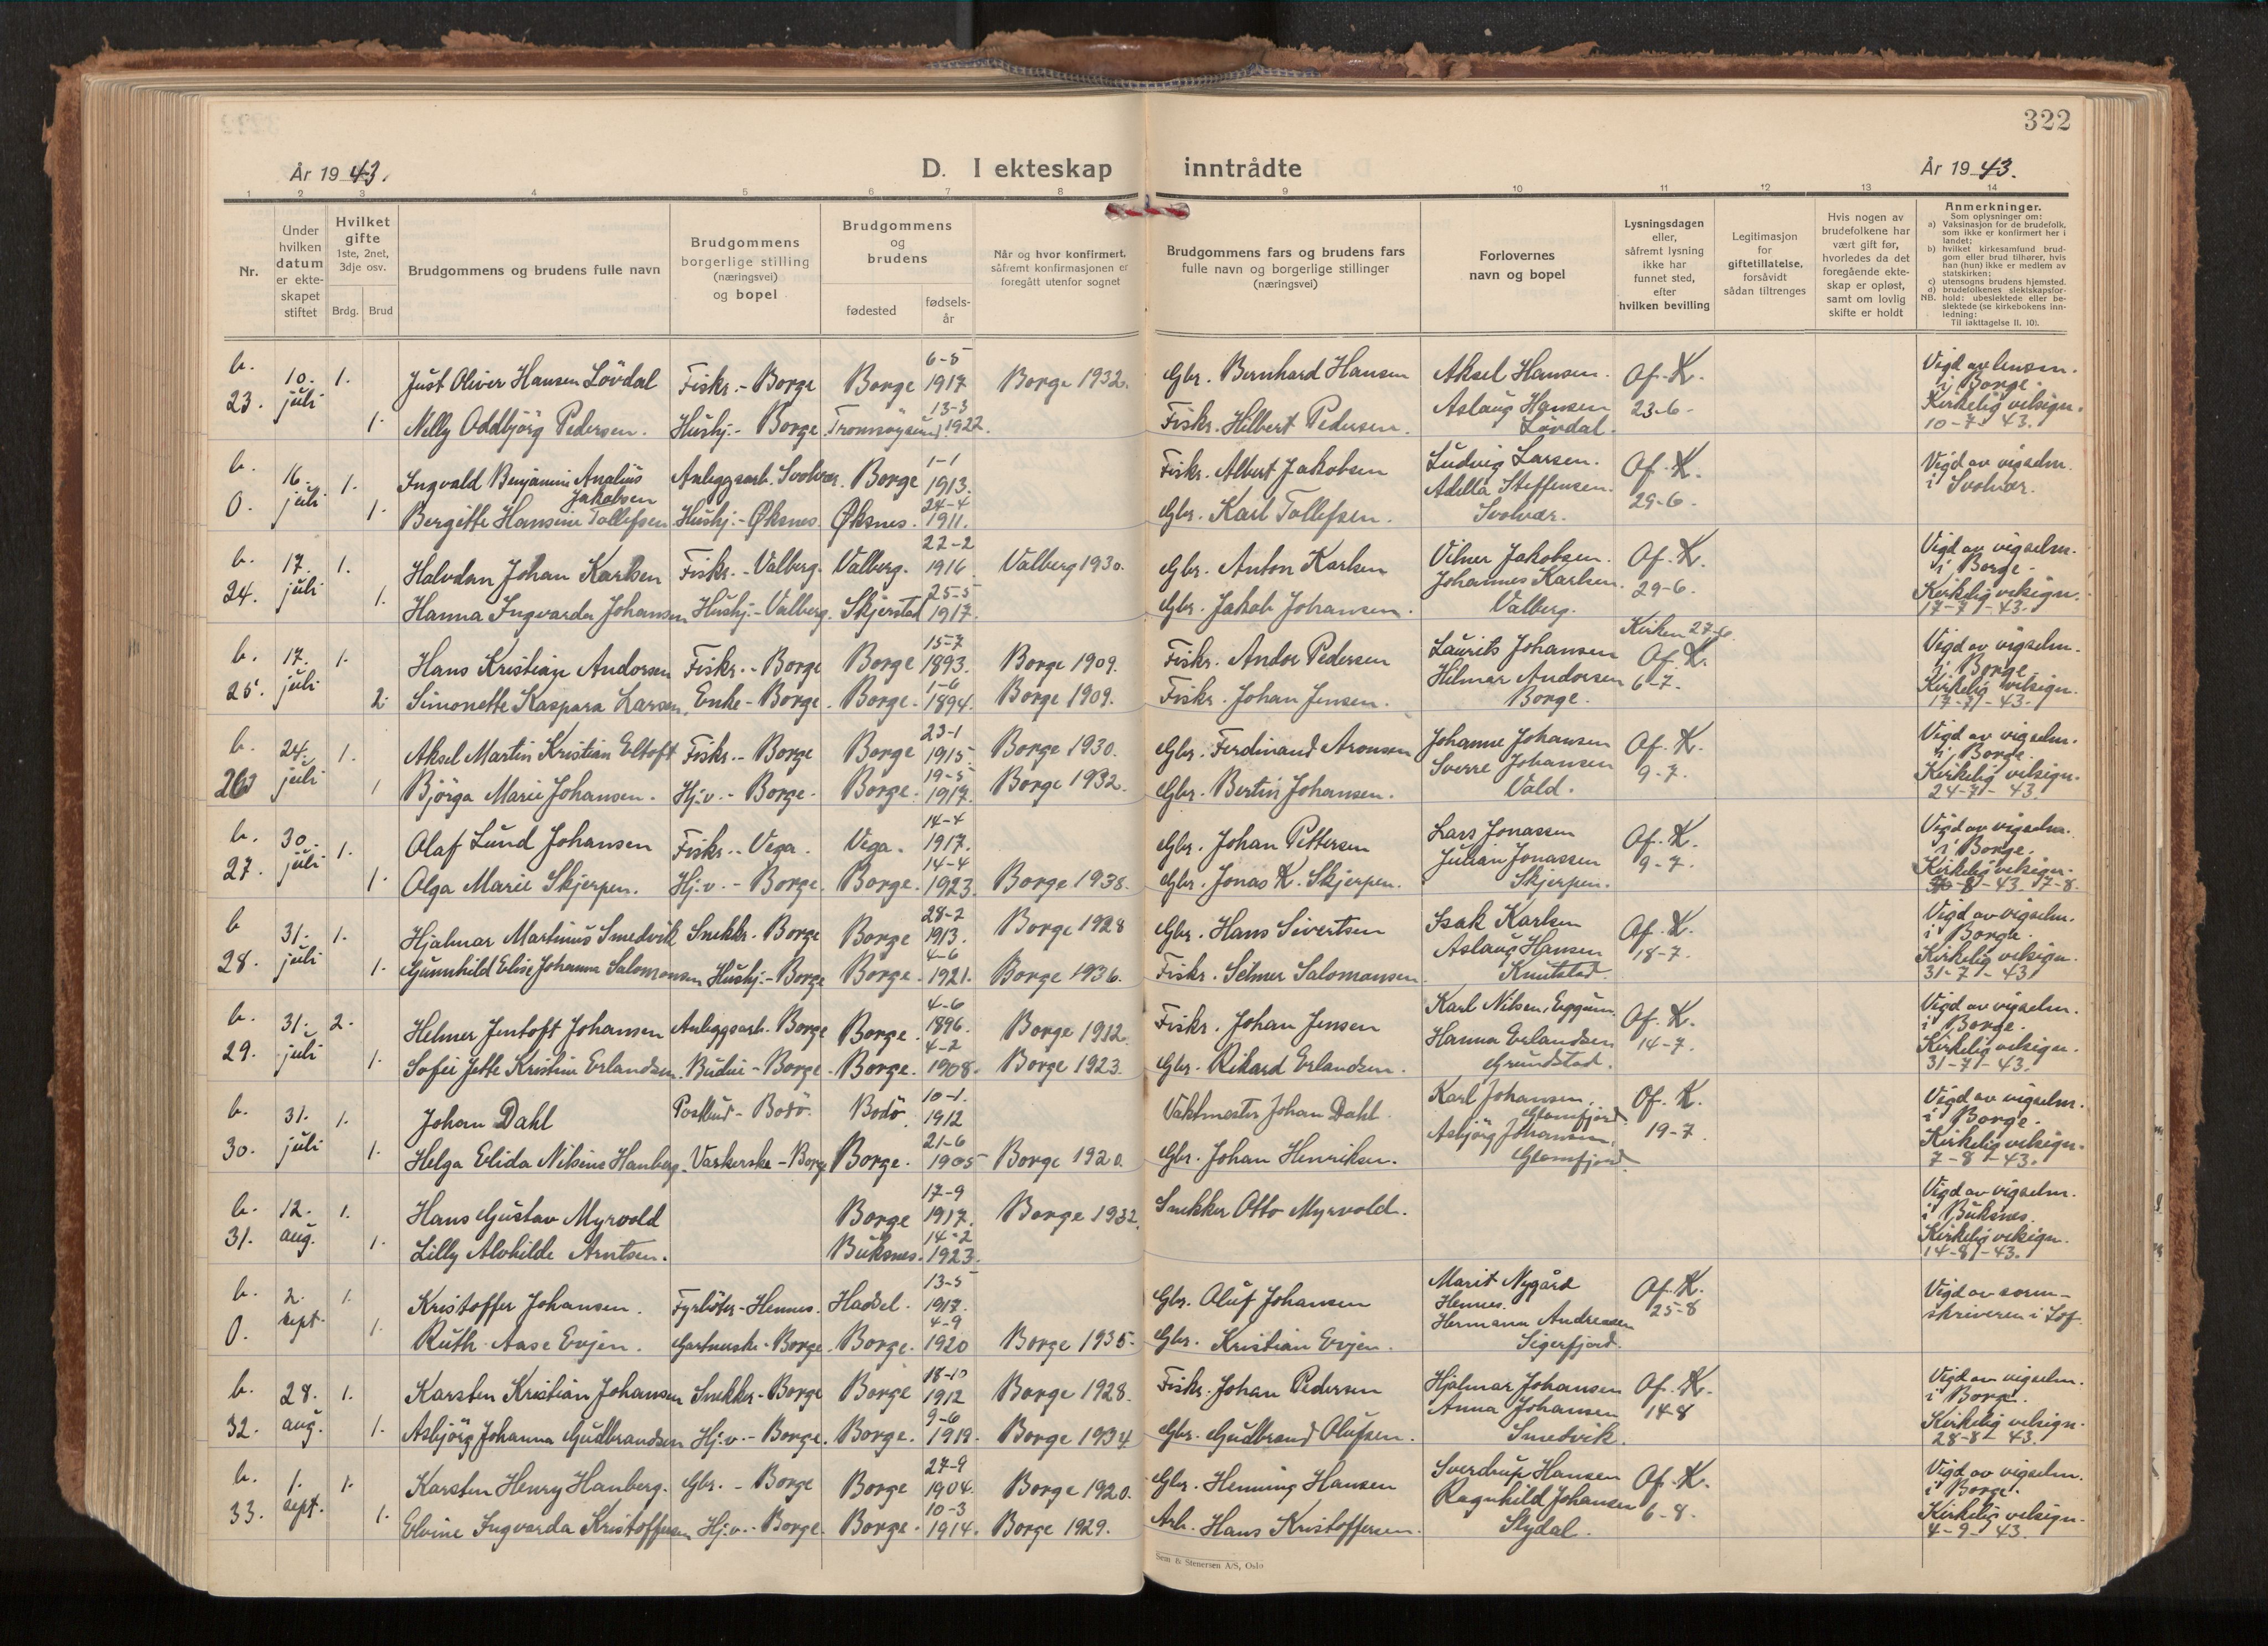 322
År 1943.
D. I ekteskap inntrådte
År 1943.
1 2 3 4 5 6 7 8 9 10 11 12 13 14
Nr.
Under hvilken datum er ekte-skapet stiftet
Hvilket gifte 1ste, 2net, 3dje osv.
Brdg. Brud
Brudgommens og brudens fulle navn
Brudgommens borgerlige stilling (næringsvei) og bopel
Brudgommens og brudens
fødested
fødsels-år
Når og hvor konfirmert, såfremt konfirmasjonen er foregått utenfor sognet
Brudgommens fars og brudens fars fulle navn og borgerlige stillinger (næringsvei)
Forlovernes navn og bopel
Lysningsdagen eller, såfremt lysning ikke har funnet sted, efter hvilken bevilling
Legitimasjon for giftetillatelse, forsåvidt sådan tiltrenges
Hvis nogen av brudefolkene har vært gift før, hvorledes da det foregående ekte-skap er opløst, samt om lovlig skifte er holdt
Anmerkninger.
Som oplysninger om:
a) Vaksinasjon for de brudefolk, som ikke er konfirmert her i landet;
b) hvilket kirkesamfund brud-gom eller brud tilhører, hvis han (hun) ikke er medlem av statskirken;
c) utensogns brudens hjemsted.
d) brudefolkenes slektskapsfor-hold: ubeslektede eller be-slektede (se kirkebokens inn-ledning:
NB.
Til iakttagelse II. 10).
b. 23. 10. juli 1. Just Oliver Hansen Lövdal Fiskr. - Borge Borge 6-5 1917 Borge 1932. Gbr. Bernhard Hansen Aksel Hansen. Of. K. Vigd av
1. Nelly Oddbjörg Pedersen. Hushj. - Borge Tromsöysund 13-3 1922. Fiskr. Hilbert Pedersen. Aslaug Hansen Lövdal. 23-6. i Borge. Kirkelig velsign. 10-7-43.
b. 0. 16. juli 1. Ingvald Benjamin Analius Jakobsen Anleggsarb. Svolvær. Borge 1-1 1913. Fiskr. Albert Jakobsen Ludvig Larsen. Of. K. Vigd av vigselm. i Svolvær.
1. Bergitte Hansine Tollefsen Hushj. - Øksnes. Øksnes. 24-4 1911. Gbr. Karl Tollefsen. Adella Steffensen. Svolvær. 29-6.
b. 24. 17. juli 1. Halvdan Johan Karlsen Fiskr. - Valberg. Valberg. 22-2 1916 Valberg 1930. Gbr. Anton Karlsen Vilner Jakobsen. Of. K. Vigd av vigselm. i Borge.
1. Hanna Ingvarda Johansen Hushj. - Valberg. Skjerstad 25-5 1917. Gbr. Jakob Johansen. Johannes Karlsen. Valberg. 29-6. Kirkelig velsign. 17-7-43.
b. 25. 17. juli 1. Hans Kristian Andorsen Fiskr. - Borge Borge 15-7 1893. Borge 1909. Fiskr. Andor Pedersen Laurits Johansen Kirken Of. K. Vigd av vigselm. i Borge.
2. Simonette Kaspara Larsen. Enke - Borge. Borge. 1-6 1894. Borge 1909. Fiskr. Johan Jensen. Hilmar Andorsen Borge. 6-7. Kirkelig velsign. 17-7-43.
b. 26 24. juli 1. Aksel Martin Kristian Eltoft Fiskr. - Borge Borge 23-1 1915. Borge 1930. Gbr. Ferdinand Aronsen Johanne Johansen Of. K. Vigd av vigselm. i Borge.
1 Björga Marie Johansen. Hj.v. - Borge. Borge. 19-5 1917. Borge 1932. Gbr. Bertin Johansen. Sverre Johansen Vald. 9-7. Kirkelig velsign. 24-7-43.
b. 27. 30. juli 1. Olaf Lund Johansen Fiskr. - Vega. Vega. 14-4 1917. Gbr. Johan Pettersen Lars Jonassen Of. K. Vigd av vigselm. i Borge.
1. Olga Marie Skjerpen. Hj.v. - Borge. Borge. 14-4 1923. Borge 1938. Gbr. Jonas K. Skjerpen. Julian Jonassen Skjerpen. 9-7. Kirkelig velsign. 8-43. 7-8.
b 28. 31. juli 1. Hjalmar Martinus Smedvik Snekkr. - Borge Borge 28-2 1913. Borge 1928 Gbr. Hans Sivertsen Isak Karlsen Of. K. Vigd av vigselm. i Borge.
1. Gunnhild Elise Johanna Salomonsen Hushj. - Borge Borge. 4-6 1921. Borge 1936. Fiskr. Selmer Salomonsen. Aslaug Hansen Knutstad. 18-7. Kirkelig velsign. 31-7-43.
b. 29. 31. juli 2. Helmer Jentoft Johansen Anleggsarb. Borge Borge. 4-6 1896. Borge 1912. Fiskr. Johan Jensen Karl Nilsen, Eggum. Of. K. Vigd av vigselm. i Borge.
1. Sofie Jette Kristine Erlandsen. Budeie - Borge. Borge. 4-2 1908. Borge 1923. Gbr. Rikard Erlandsen. Hanna Erlandsen Grundstad. 14-7. Kirkelig velsign. 31-7-43.
b. 30. 31. juli 1. Johan Dahl Postbud - Bodö. Bodö. 10-1. 1912 Vaktmester Johan Dahl. Karl Johansen, Glomfjord. Of. K. Vigd av vigselm. i Borge.
1. Helga Elida Nilsine Hanberg. Vaskerske - Borge Borge. 21-6 1905 Borge 1920. Gbr. Johan Henriksen. Asbjörg Johansen, Glomfjord. 19-7. Kirkelig velsign. 7-8-43.
b. 31. 12. aug. 1. Hans Gustav Myrvold Borge 17-9 1917. Borge 1932. Snekker Otto Myrvold. Vigd av vigselm. i Buksnes.
1. Lilly Alvhilde Arntsen. Buksnes. 14-2 1923. Kirkelig velsign. 14-8-43.
b. 0. 2. sept. 1. Kristoffer Johansen. Fyrböter - Hennes. Hadsel. 13-5 1917. Gbr. Oluf Johansen Marit Nygård Hennes. Of. K. Vigd av soren-skriveren i Lof.
1. Ruth Aase Evjen. Gartnerske - Borge. Borge. 4-9 1920 Borge 1935. Gbr. Kristian Evjen. Hermann Andreasen Sigerfjord. 25-8
b. 32. 28. aug. 1. Karsten Kristian Johansen Snekker - Borge Borge 18-10 1912 Borge 1928. Fiskr. Johan Pedersen Hjalmar Johansen Of. K. Vigd av vigselm. i Borge.
1. Asbjörg Johanna Gudbrandsen Hj.v. - Borge. Borge. 9-6 1919. Borge 1934 Gbr. Gudbrand Olufsen. Anna Johansen Smedvik. 14-8 Kirkelig velsign. 28-8-43.
b. 33. 1. sept. 1. Karsten Henry Hanberg. Gbr. - Borge Borge 27-9 1904. Borge 1920. Gbr. Henning Hansen Sverdrup Hansen Of. K. Vigd av vigselm. i Borge.
1. Elvine Ingvarda Kristoffersen Hj.v. - Borge. Borge. 10-3 1914. Borge 1929. Arb. Hans Kristoffersen. Ragnhild Johansen Slydal. 6-8. Kirkelig velsign. 4-9-43.
Sem & Stenersen A/S, Oslo